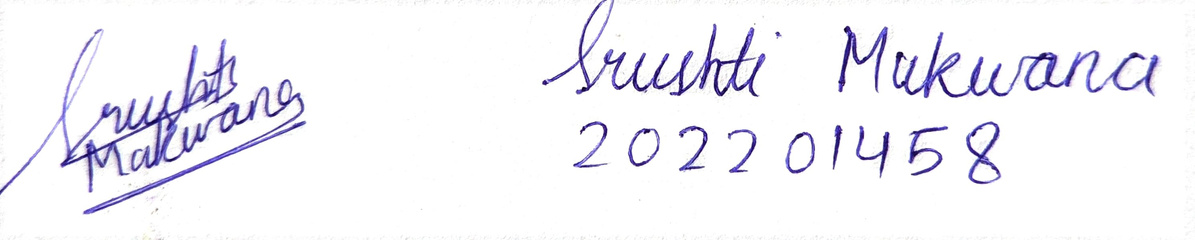 Srushti
Makwana
Srushti Makwana
202201458